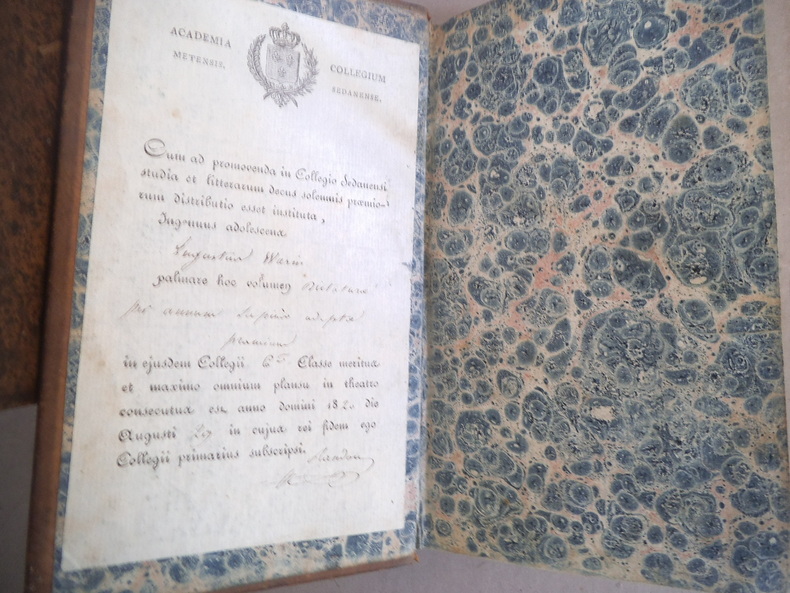 ACADEMIA
METENSIS.
COLLEGIUM
SEDANENSE.
Cum ad promovenda in Collegio Sedanensi
studia et litterarum decus solemnis præmio-
rum distributio esset instituta,
Ingenuus adolescens
Augustus
palmare hoc volumen
per annum adeptæ
præmium
in ejusdem Collegii 6 Classe meritus
et maximo omnium plausu in theatro
consecutus est anno domini 1820 die
Augusti in cujus rei fidem ego
Collegii primarius subscripsi.